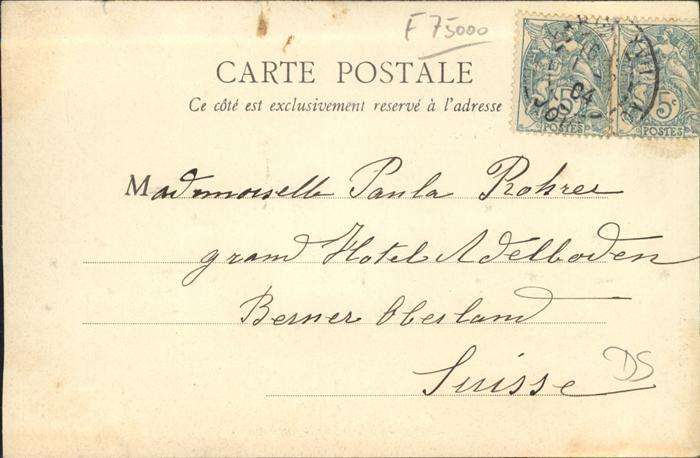 F 75000
CARTE POSTALE
Ce côté est exclusivement reservé à l'adresse
5c 5c
POSTES POSTES
04
Mademoiselle Paula Rohrer
grand Hotel Adelboden
Berner Oberland
Suisse
DS